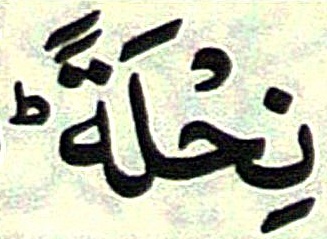 نِحْلَةً ؕ